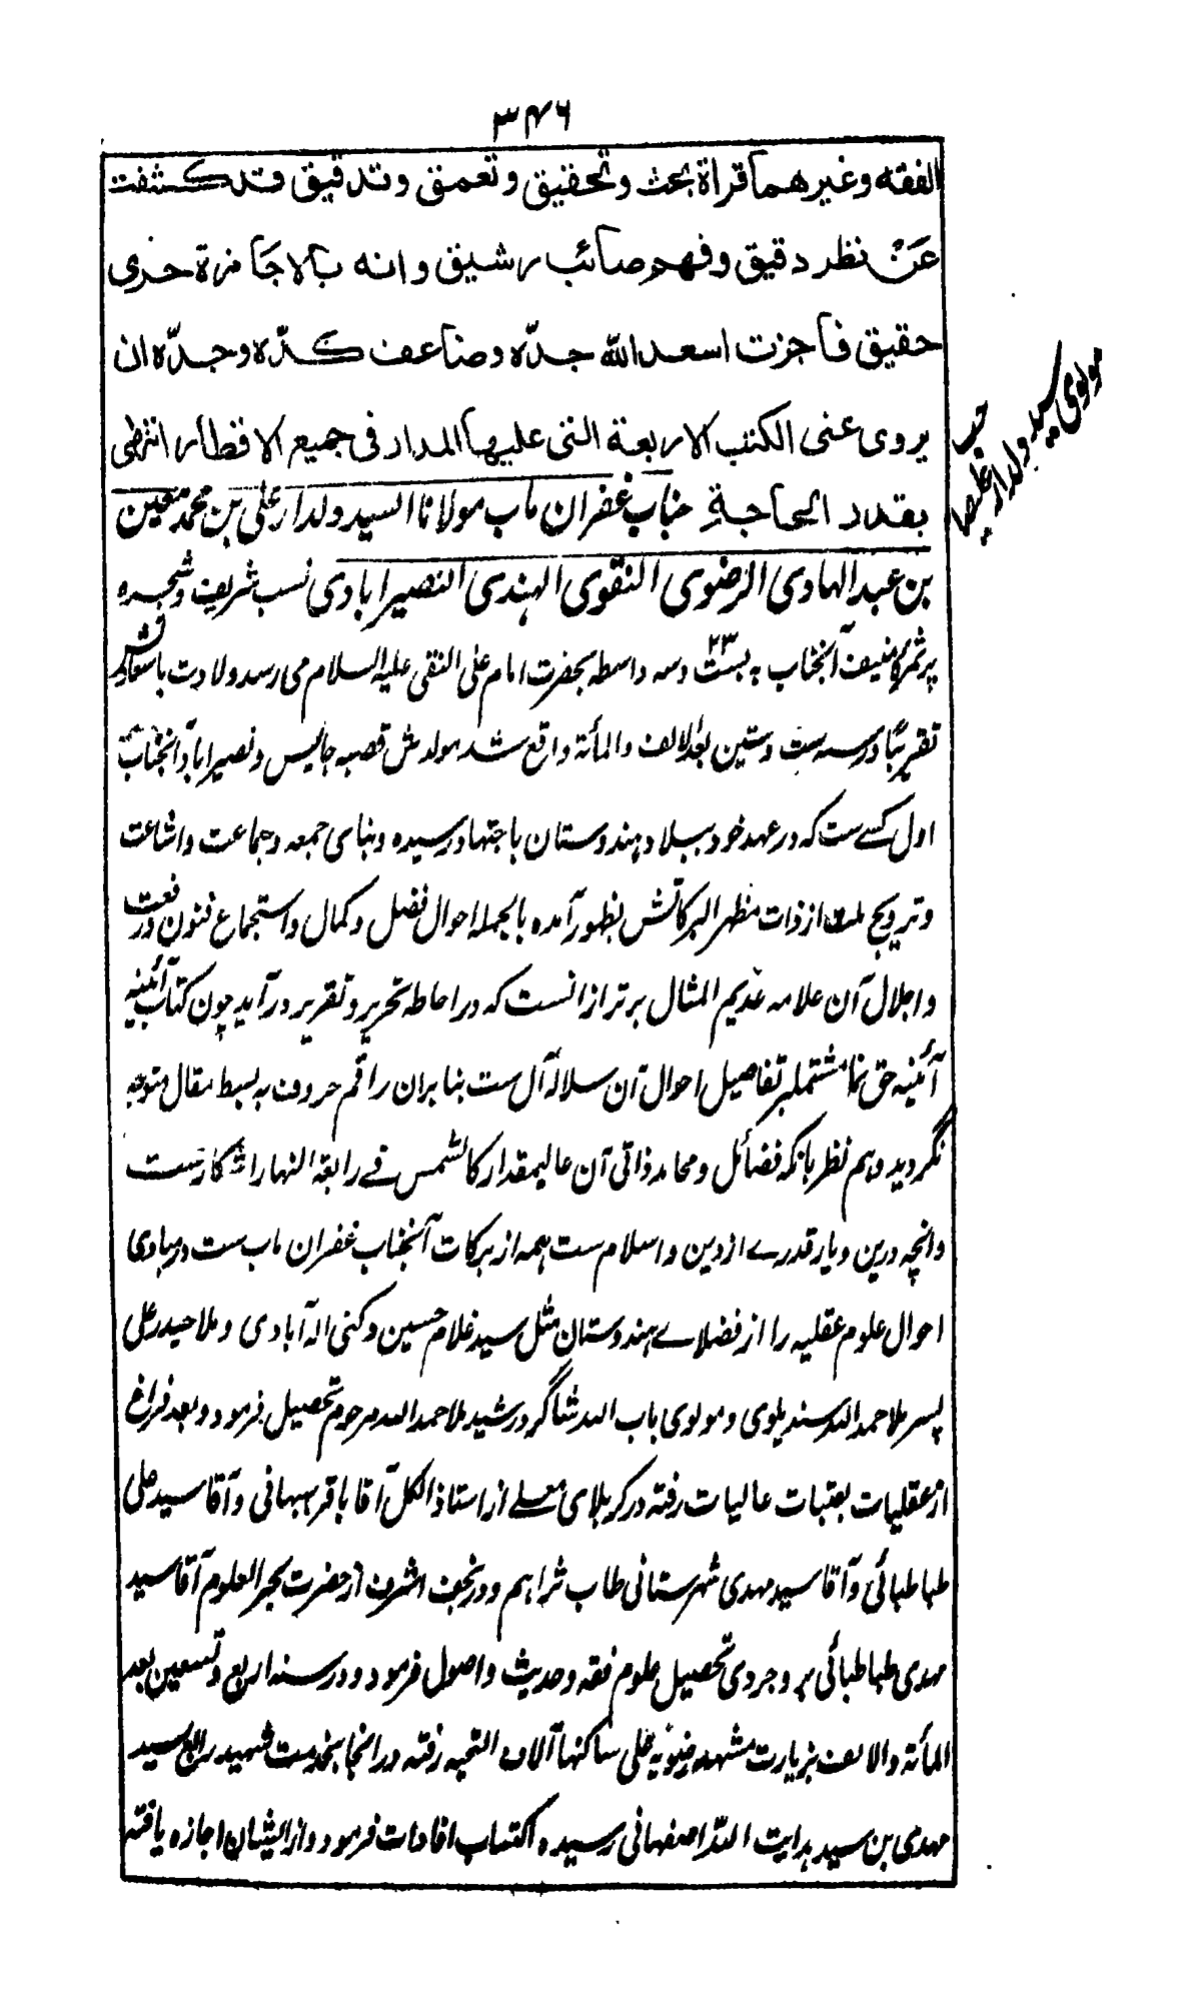 ۳۴۶
الفقه وغیرهما قراة بحث وتحقیق وتعمق وتدقیق قد کشفت
عن نظر دقیق وفهم صائب رشیق وانه بالاجازة حری
حقیق فاجزت اسعد الله جدّه وضاعف کدّه وجدّه ان
یروی عنی الکتب الاربعة التی علیها المدار فی جمیع الاقطار انتهی
بقدر الحاجة جناب غفران مآب مولانا السید دلدار علی بن محمد معین
بن عبد الهادی الرضوی النقوی الهندی النصیرابادی نسب شریف وشجره
پرثمرهٔ منیف آنجناب به بست ۲۳ وسه واسطه بحضرت امام علی النقی علیه السلام می رسد ولادت باسعادتش
تقریبًا در سنه ست وستین بعد الالف والمأته واقع شد مولدش قصبه جایس ونصیراباد آنجناب
اول کسے ست که در عهد خود ببلاد هندوستان باجتهاد رسیده وبنای جمعه وجماعت واشاعت
وترویج ملت از ذات مظهر البرکاتش بظهور آمده بالجمله احوال فضل وکمال واستجماع فنون ورفعت
واجلال آن علامه عدیم المثال برتر ازانست که در احاطه تحریر وتقریر درآید چون کتاب آئینه
آئینه حق نما مشتمل بر تفاصیل احوال آن سلاله آل ست بنابران راقم حروف به بسط مقال متوجه
نگردید وهم نظر بآنکه فضائل ومحامد ذاتی آن عالیمقدار کالشمس فے رابعة النهار آشکار ست
وآنچه درین دیار قدرے از دین واسلام ست همه از برکات آنجناب غفران مآب ست در مبادی
احوال علوم عقلیه را از فضلاے هندوستان مثل سید غلام حسین دکنی اله آبادی وملا حیدر علی
پسر ملا حمد الله سندیلوی ومولوی باب الله شاگرد رشید ملا حمد الله مرحوم تحصیل فرمود وبعد فراغ
از عقلیات بعتبات عالیات رفته در کربلای معلے از استاذ الکل آقا باقر بهبهانی وآقا سید علی
طباطبائی وآقا سید مهدی شهرستانی طاب ثراهم ودر نجف اشرف از حضرت بحر العلوم آقا سید
مهدی طباطبائی بروجردی تحصیل علوم فقه وحدیث واصول فرمود ودر سنه اربع وتسعین بعد
المأته والالف بزیارت مشهد رضویه علی ساکنها آلاف التحیه رفته درانجا بخدمت شهید رابع سید
مهدی بن سید هدایت الله اصفهانی رسیده اکتساب افادات فرمود واز ایشان اجازه یافته
مولوی سید دلدار علی صاحب